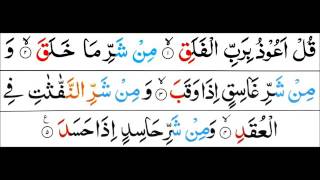 قُلْ اَعُوْذُ بِرَبِّ الْفَلَقِ ۙ﴿۱﴾ مِنْ شَرِّ مَا خَلَقَ ۙ﴿۲﴾ وَ
مِنْ شَرِّ غَاسِقٍ اِذَا وَقَبَ ۙ﴿۳﴾ وَ مِنْ شَرِّ النَّفّٰثٰتِ فِی
الْعُقَدِ ۙ﴿۴﴾ وَ مِنْ شَرِّ حَاسِدٍ اِذَا حَسَدَ ﴿۵﴾